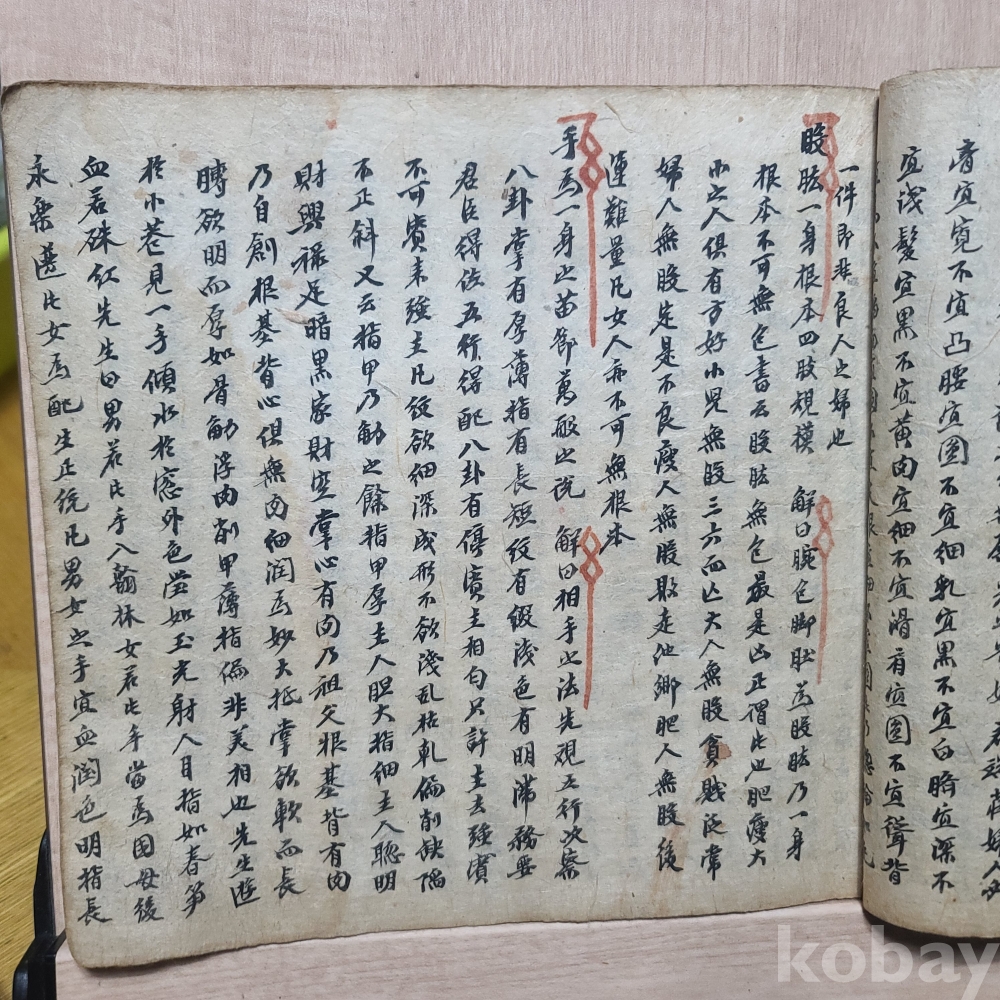 膏宜寬不宜凸腰宜圓不宜細乳宜黑不宜白臍宜深不
宜淺髮宜黑不宜黃肉宜細不宜滑肩宜圓不宜聳背
一件即非良人之婦也
股肱一身根本四肢規模 解曰腕包脚肚爲股肱乃一身
根本不可無包書云股肱無包最是凶正謂此也肥瘦大
小之人俱有方好小兒無股三六而亡大人無股貧賤泛常
婦人無股定是不良瘦人無股敗走他鄉肥人無股後
運難量凡女人亦不可無根本
手爲一身之苗節萬般之說 解曰相手之法先觀五行次察
八卦掌有厚薄指有長短紋有綴淺色有明滯務要
君臣得位五行得配八卦有停賓主相勻只許主去強賓
不可賓來強主凡紋欲細深成形不欲淺乱枯軋偏削缺陷
不正斜又云指甲乃觔之餘指甲厚主人胆大指細主人聰明
財興祿足暗黑家財空掌心有肉乃祖父根基背有肉
乃自創根基背心俱無肉細潤爲妙大抵掌欲軟而長
膊欲明而厚如骨觔浮肉削甲薄指偏非美相也先生遊
於小巷見一手傾水於窓外色瑩如玉光射人目指如春笋
血若硃紅先生曰男若此手入翰林女若此手當爲国母後
永樂選此女爲配生正統凡男女之手宜血潤色明指長
kobay